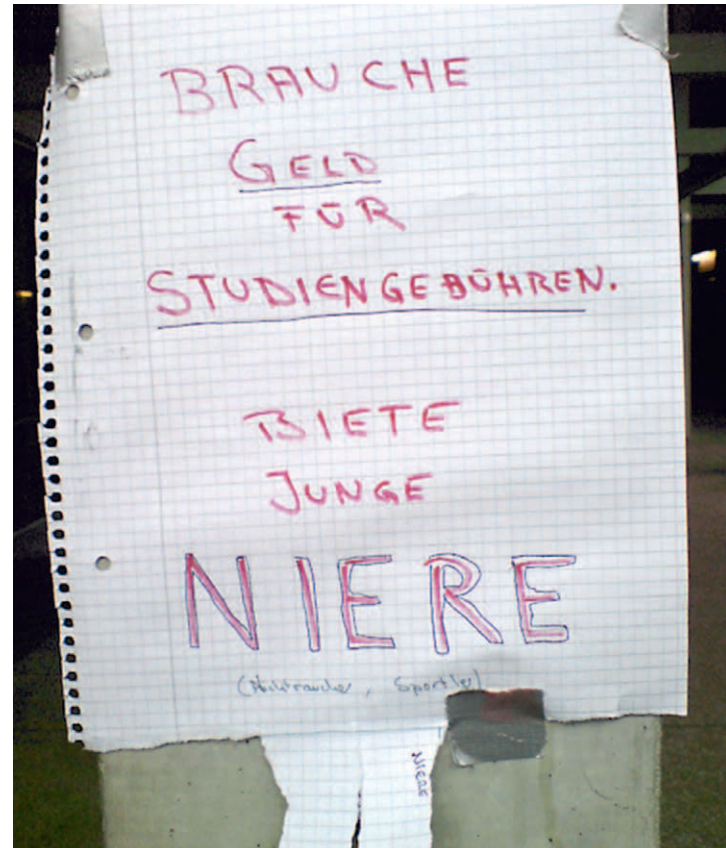 BRAUCHE
GELD
FÜR
STUDIENGEBÜHREN.
BIETE
JUNGE
NIERE
(Nichtraucher, Sportler)
NIERE